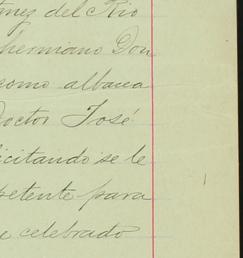 ánez del Rio
hermano Don
como albacea
Doctor José
icitando se le
petente para
e celebrado